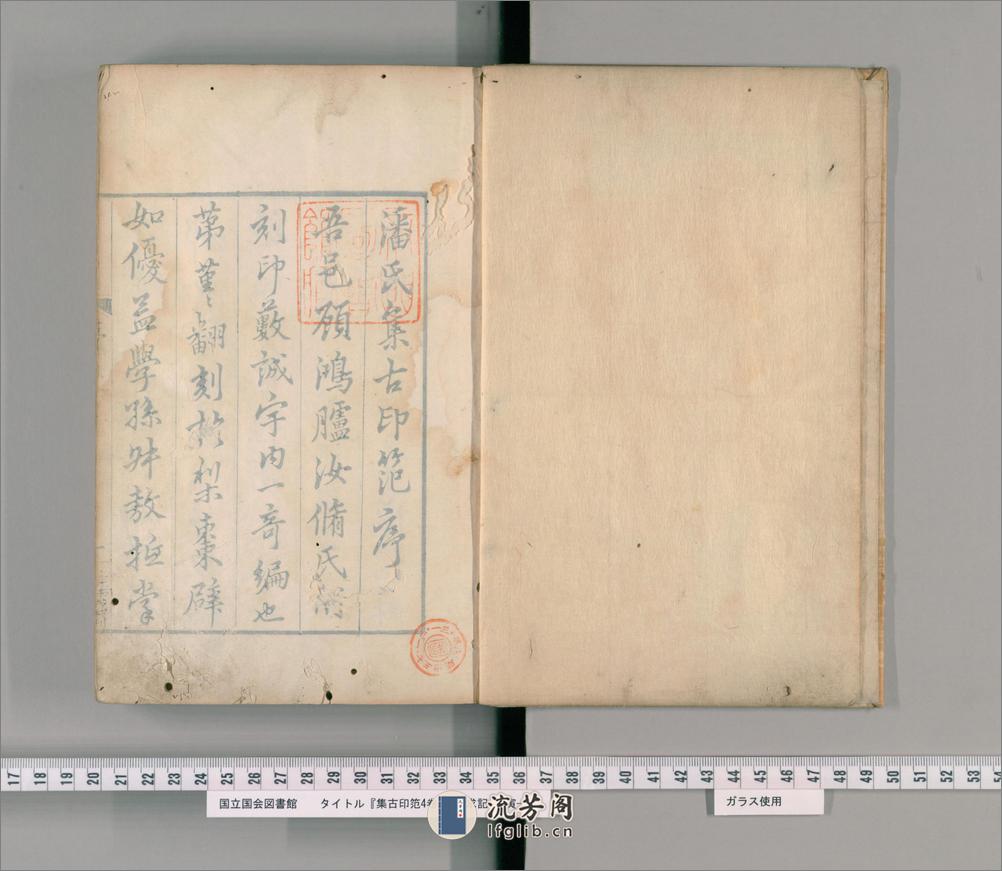 潘氏集古印笵序
吾邑顧鴻臚汝脩氏所
刻印藪誠宇内一奇編也
苐菫〻翻刻扵梨棗臂
如優孟學孫叔敖抵掌
17 18 19 20 21 22 23 24 25 26 27 28 29 30 31 32 33 34 35 36 37 38 39 40 41 42 43 44 45 46 47 48 49 50 51 52 53 54
国立国会図書館 タイトル『集古印笵4巻
ガラス使用
流芳阁
lfglib.cn